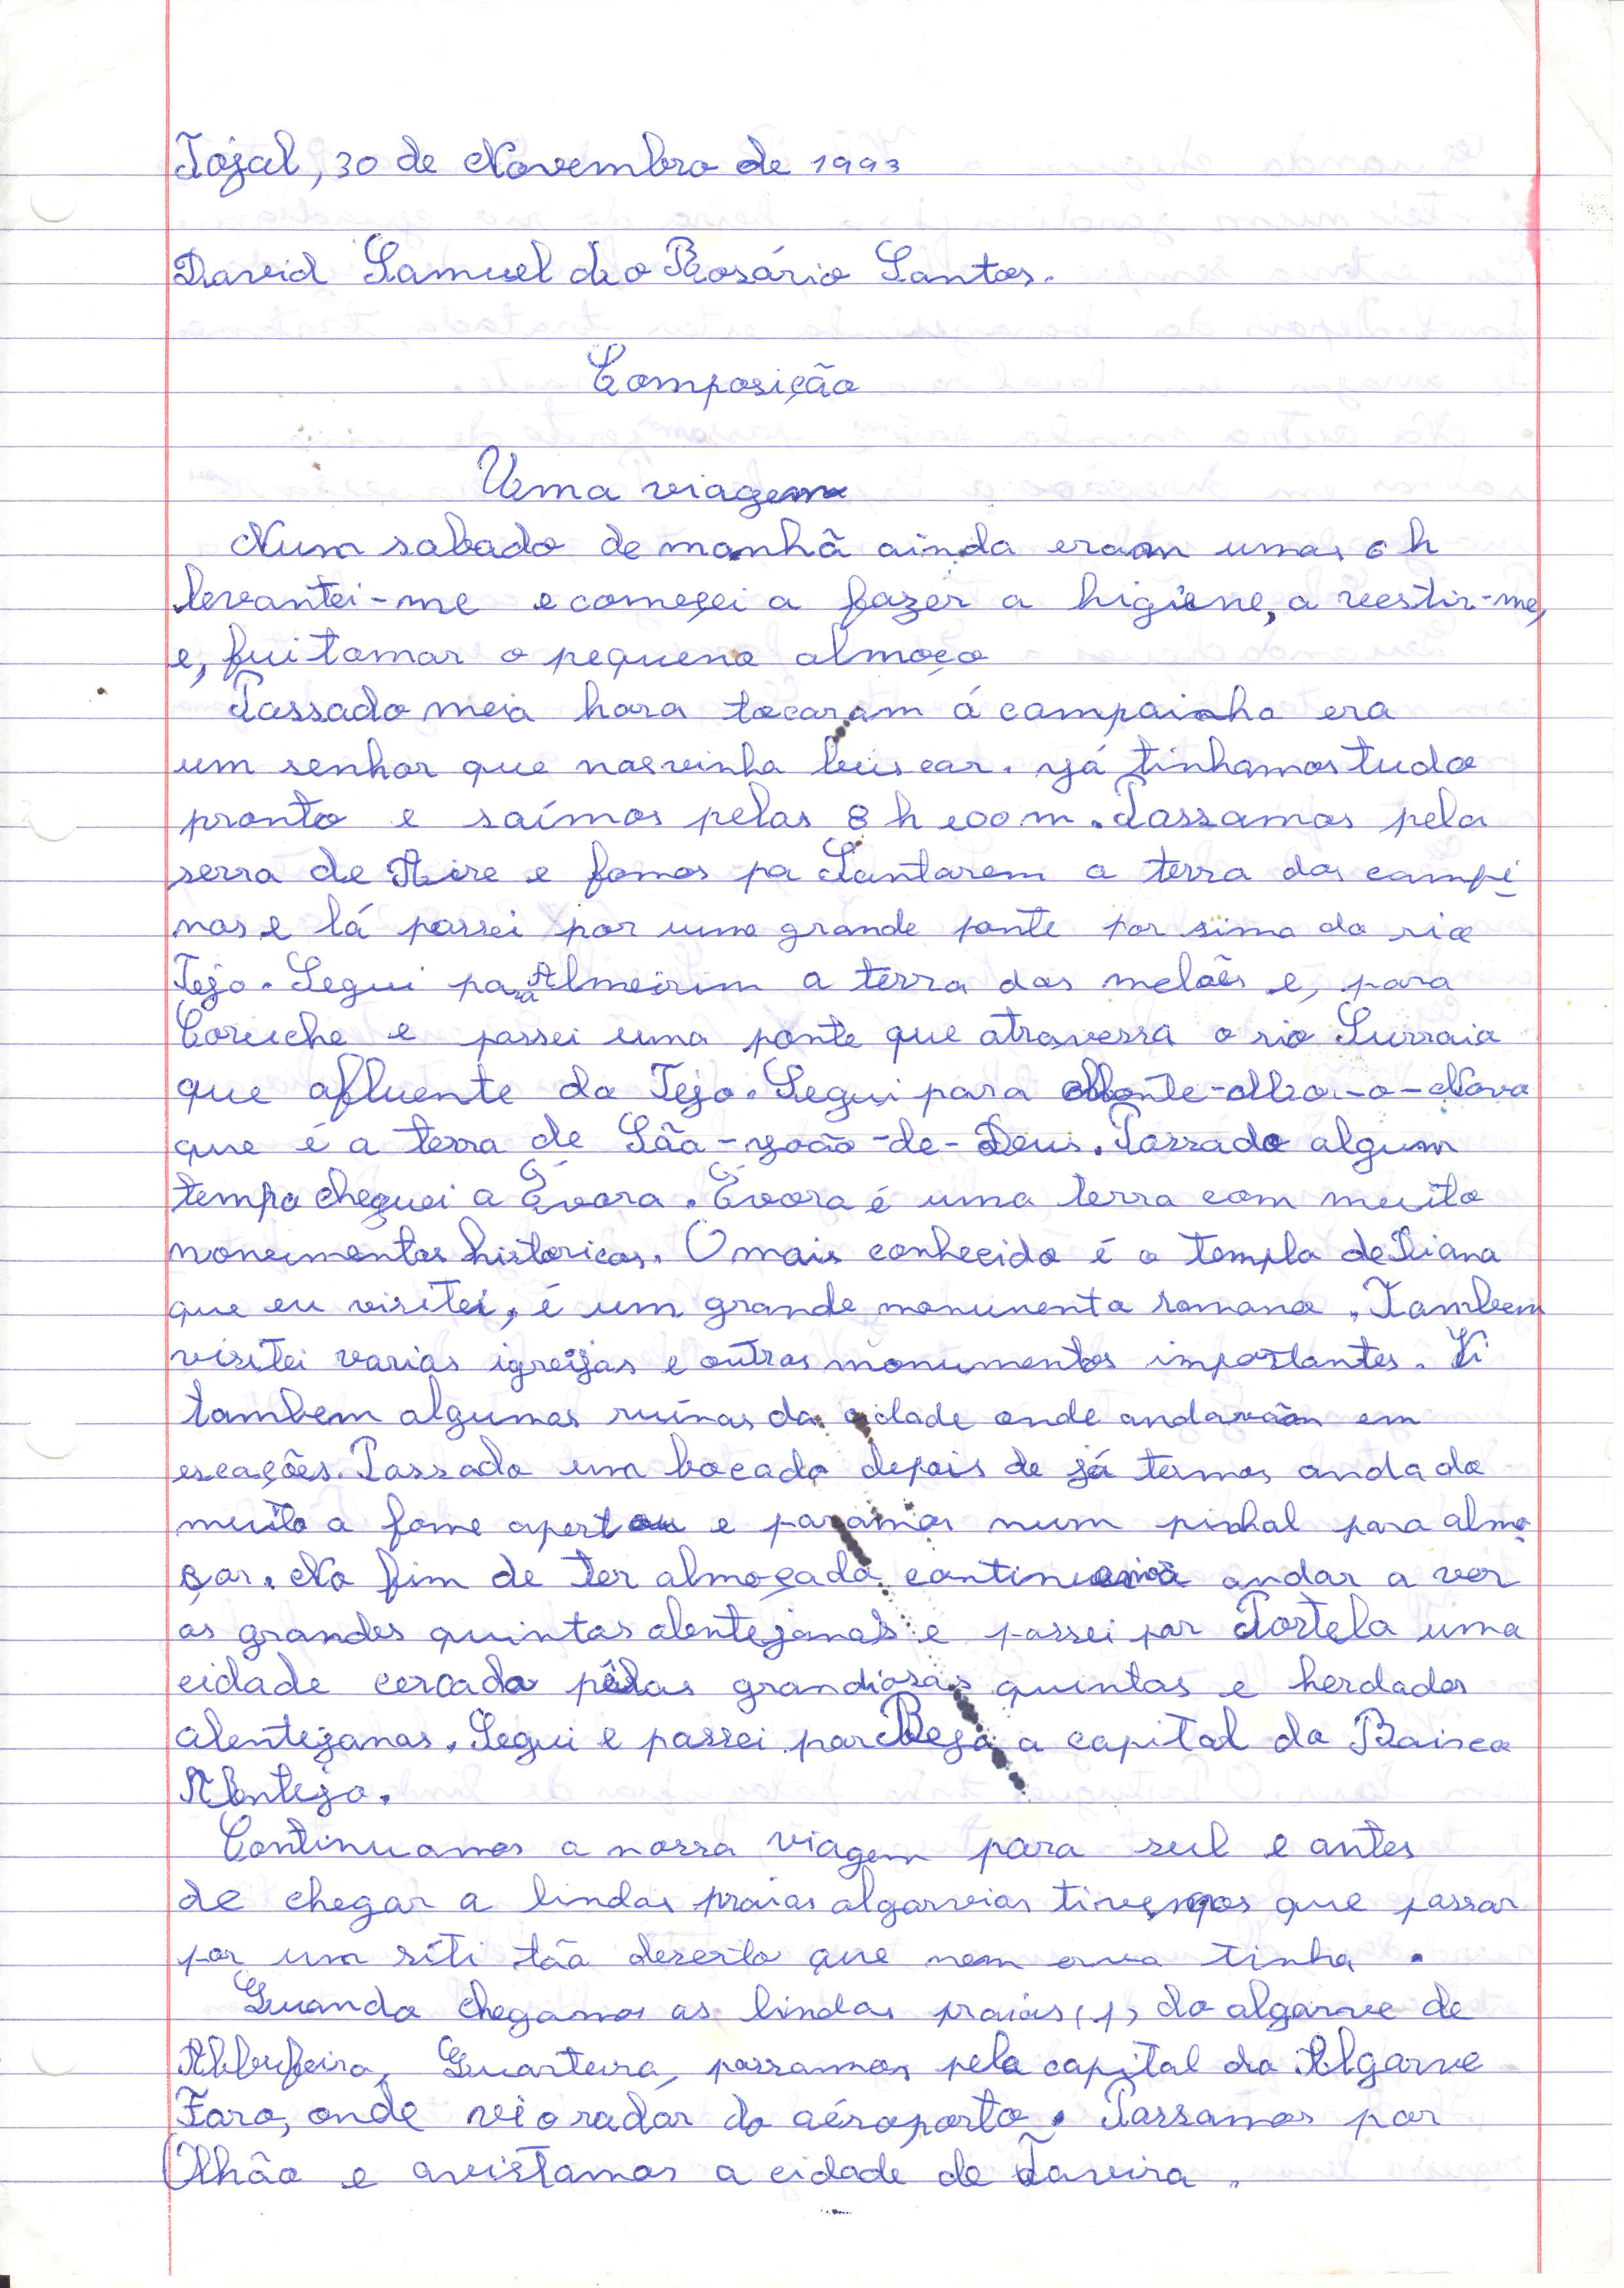 Tojal, 30 de Novembro de 1993
David Samuel do Rosário Santos.
Composição
Uma viagem
Num sabado de manhã ainda eram umas 6 h
levantei-me e começei a fazer a higiene, a vestir-me,
e, fui tomar o pequeno almoço
Passado meia hora tocaram á campainha era
um senhor que nos vinha buscar. já tinhamos tudo
pronto e saímos pelas 8 h e00 m. Passamos pela
serra de Aire e fomos pa Santarem a terra dos campi
nos e lá passei por uma grande ponte por sima do rio
Tejo. Segui para Almeirim a terra dos melões e, para
Coruche e passei uma ponte que atravessa o rio Surraia
que afluente do Tejo. Segui para Monte-Mor-o-Novo
que é a terra de São-joão-de-Deus. Passado algum
tempo cheguei a Évora. Évora é uma terra com muito
monumentos historicos. O mais conhecido é o templo de Diana
que eu visitei, é um grande monumento romano. Tambem
visitei varias igrejas e outros monumentos importantes. Vi
tambem algumas ruínas da cidade onde andavam em
escações. Passado um bocado depois de já termos andado
muito a fome apertou e paramos num pinhal para almo
çar. No fim de ter almoçado a andar a ver
as grandes quintas alentejanas e passei por Portela uma
cidade cercada pelas grandiosas quintas e herdades
alentejanas. Segui e passei por Beja a capital do Baixo
Alentejo.
Continuamos a nossa viagem para sul e antes
de chegar a lindas praias algarvias tivemos que passar
por um siti tão deserto que nem erva tinha.
Quando chegamos as lindas praias (,) do algarve de
Albufeira, Quarteira, passamos pela capital do Algarve
Faro, onde vi o radar do aéroporto. Passamos por
Olhão e avistamos a cidade de Taveira.